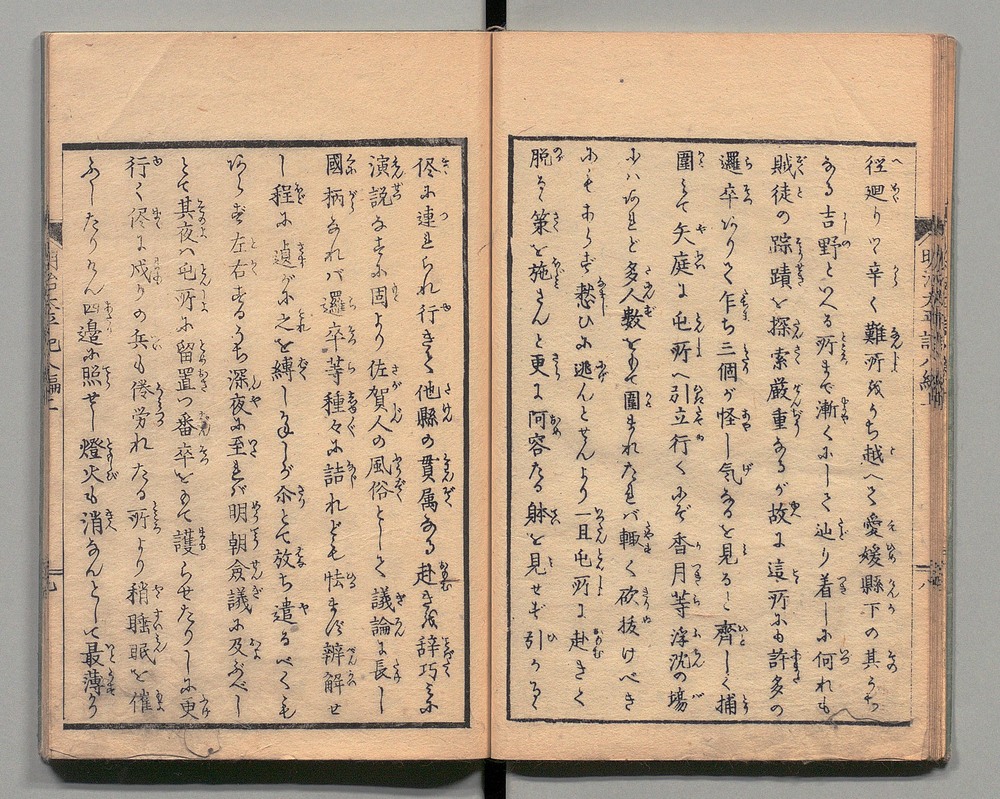 径廻りつ辛く難所をうち越へて愛媛縣下の其うち
なる吉野といへる所まで漸くにして辿り着しに何れも
賊徒の踪蹟を探索厳重なるが故に這所にも許多の
邏卒ありて乍ち三個が怪し気なるを見るに齊しく捕
圍みて矢庭に屯所へ引立行くにぞ香月等浮沈の場
にハあれど多人數をもて圍まれたれバ輙く砍抜けべき
にもあらず憖ひに逃んとせんより一旦屯所に赴きて
脱るゝ策を施さんと更に阿容たる躰を見せず引かるゝ
侭に連られ行きて他縣の貫属なる赴きを辞巧みに
演説なすに固より佐賀人の風俗として議論に長し
國柄なれバ邏卒等種々に詰れども怯まず辨解せ
し程に遉がに之を縛しもしがた命とて放ち遣るべくも
あらず左右するうち深夜に至れバ明朝僉議に及ぶべし
とて其夜ハ屯所に留置つ番卒をもて護らせたりしに更
行く侭に戍りの兵も倦労れたる所より稍睡眠を催
ふしたりけん四邉に照せし燈火も消なんとして最薄か
明治太平記八編一
八
明治太平記八編一
九